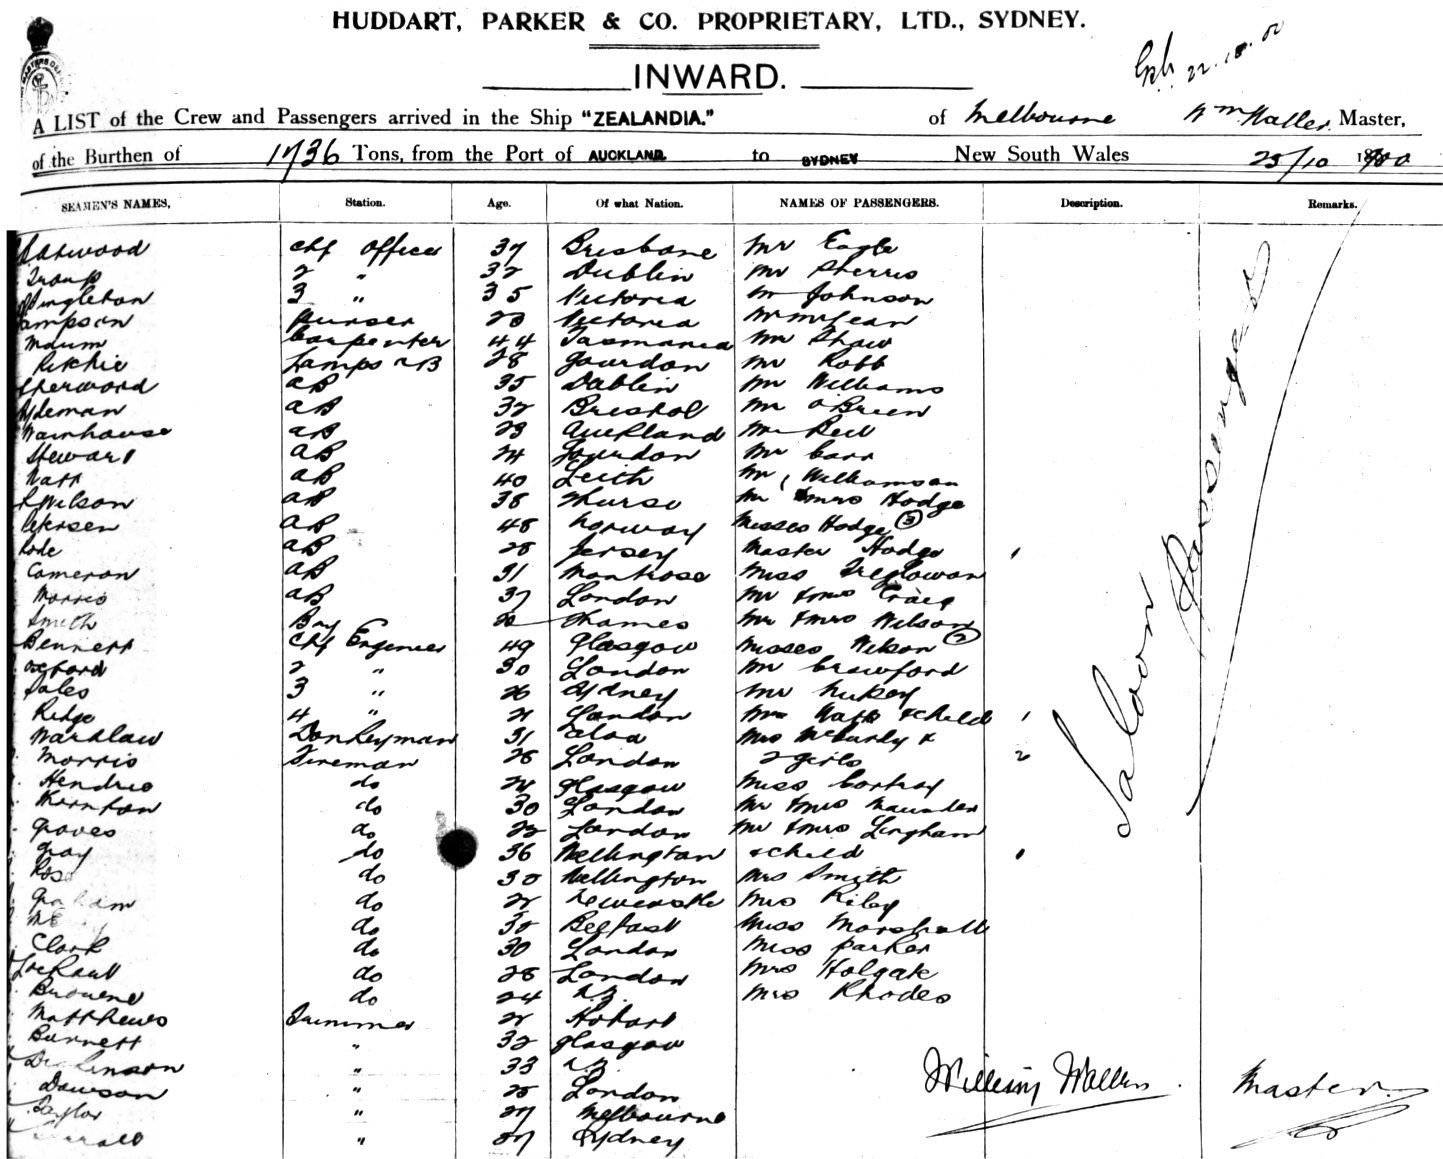 HUDDART, PARKER & CO. PROPRIETARY, LTD., SYDNEY.
INWARD.
A LIST of the Crew and Passengers arrived in the Ship "ZEALANDIA." of Melbourne Wm Waller Master,
of the Burthen of 1736 Tons, from the Port of AUCKLAND to SYDNEY New South Wales 23/10 1900
SEAMEN'S NAMES, Station. Age. Of what Nation. NAMES OF PASSENGERS. Description. Remarks.
chf officer 37 Brisbane Mr Eagle
Troup 2 " 32 Dublin Mr Sherris
Singleton 3 " 35 Victoria Mr Johnson
purser 23 Victoria Mr McLean
Maum Carpenter 44 Tasmania Mr Shaw
Ritchie Lamps AB 28 Gourdon Mr Robb
Sherwood AB 35 Dublin Mr Williams
AB 32 Bristol Mr O'Brien
Wainhouse AB 23 Auckland Mr Bell
Stewart AB 24 Gourdon Mr Carr
Watt AB 40 Leith Mr Williamson
Wilson AB 38 Thurso Mr & Mrs Hodge
AB 48 Norway Misses Hodge (3)
AB 28 Jersey Master Hodge 1
Cameron AB 31 Montrose Miss Treglowan
Morris AB 37 London Mr & Mrs Craig
Smith Boy Thames Mr & Mrs Wilson
Bennett Chf Engineer 49 Glasgow Misses Wilson (2)
Oxford 2 " 30 London Mr Crawford
Sales 3 " 26 Sydney Mr
Ridge 4 " 21 London Mrs Watt & child 1
Wardlaw Donkeyman 31 Aloa Mrs McCurdy &
Morris Fireman 28 London 2 girls 2
Hendrie do Glasgow Miss
Thornton do 30 London Mr & Mrs Maunder
Groves do 22 London Mr & Mrs Lingham
Gray do 36 Wellington & child 1
Rose do 30 Wellington Mrs Smith
Graham do Newcastle Mrs Riley
do 30 Belfast Miss Marshall
Clark do 30 London Miss Parker
Lockart do 28 London Mrs Holgate
do 24 N.Z. Mrs Rhodes
Matthews Trimmer Hobart
Burnett " 32 Glasgow
Dickinson " 33 N.Z.
Dawson " 25 London
Taylor " 27 Melbourne
" 27 Sydney
Saloon Passengers
William Waller Master